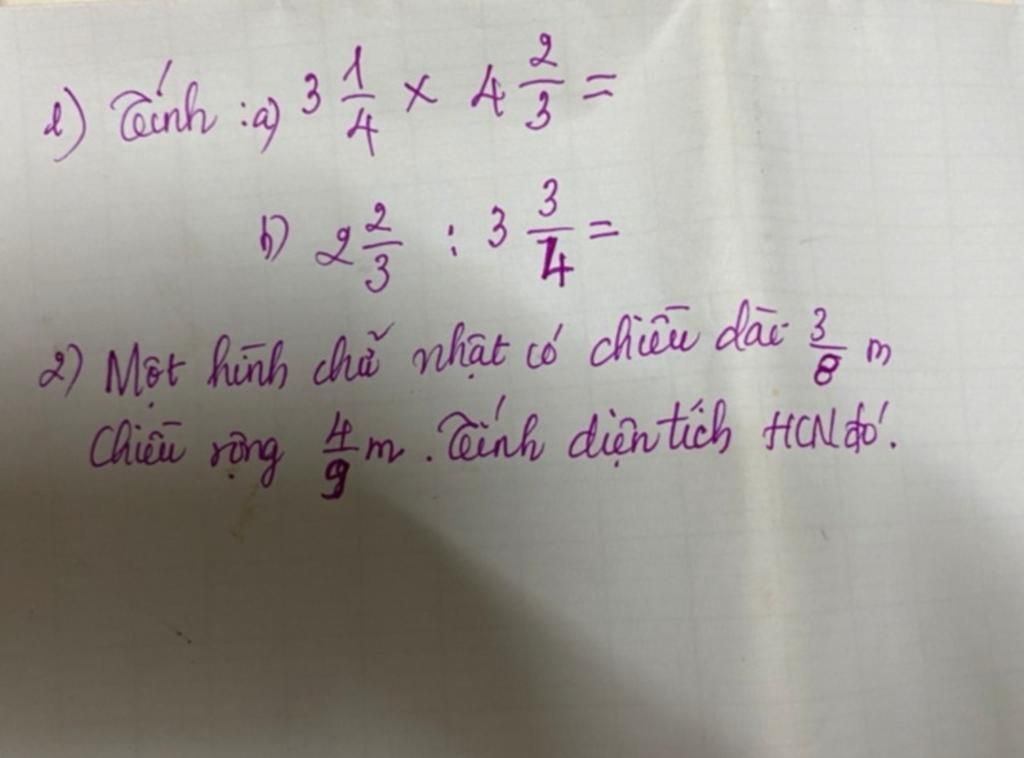 1) Tính : a) 3 1/4 × 4 2/3 =
b) 2 2/3 : 3 3/4 =
2) Một hình chữ nhật có chiều dài 3/8 m
Chiều rộng 4/9 m. Tính diện tích HCN đó.